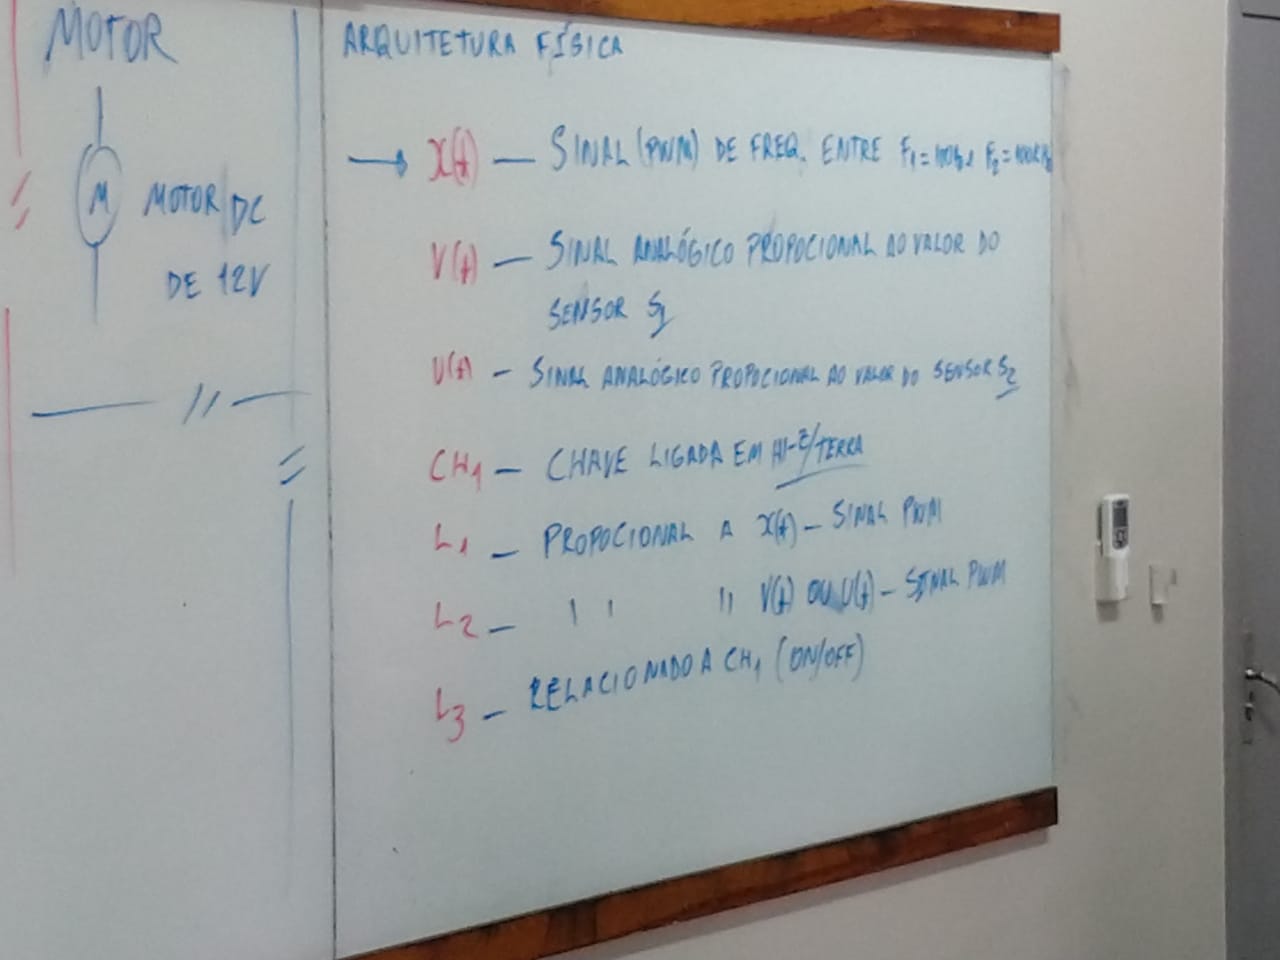 MOTOR
M
MOTOR DC
DE 12V
ARQUITETURA FÍSICA
X(t) — SINAL (PWM) DE FREQ. ENTRE F1 = F2 =
V(t) — SINAL ANALÓGICO PROPOCIONAL AO VALOR DO
SENSOR S1
U(t) — SINAL ANALÓGICO PROPOCIONAL AO VALOR DO SENSOR S2
CH1 — CHAVE LIGADA EM HI-Z/TERRA
L1 — PROPOCIONAL A X(t) — SINAL PWM
L2 — " " V(t) OU U(t) — SINAL PWM
L3 — RELACIONADO A CH1 (ON/OFF)